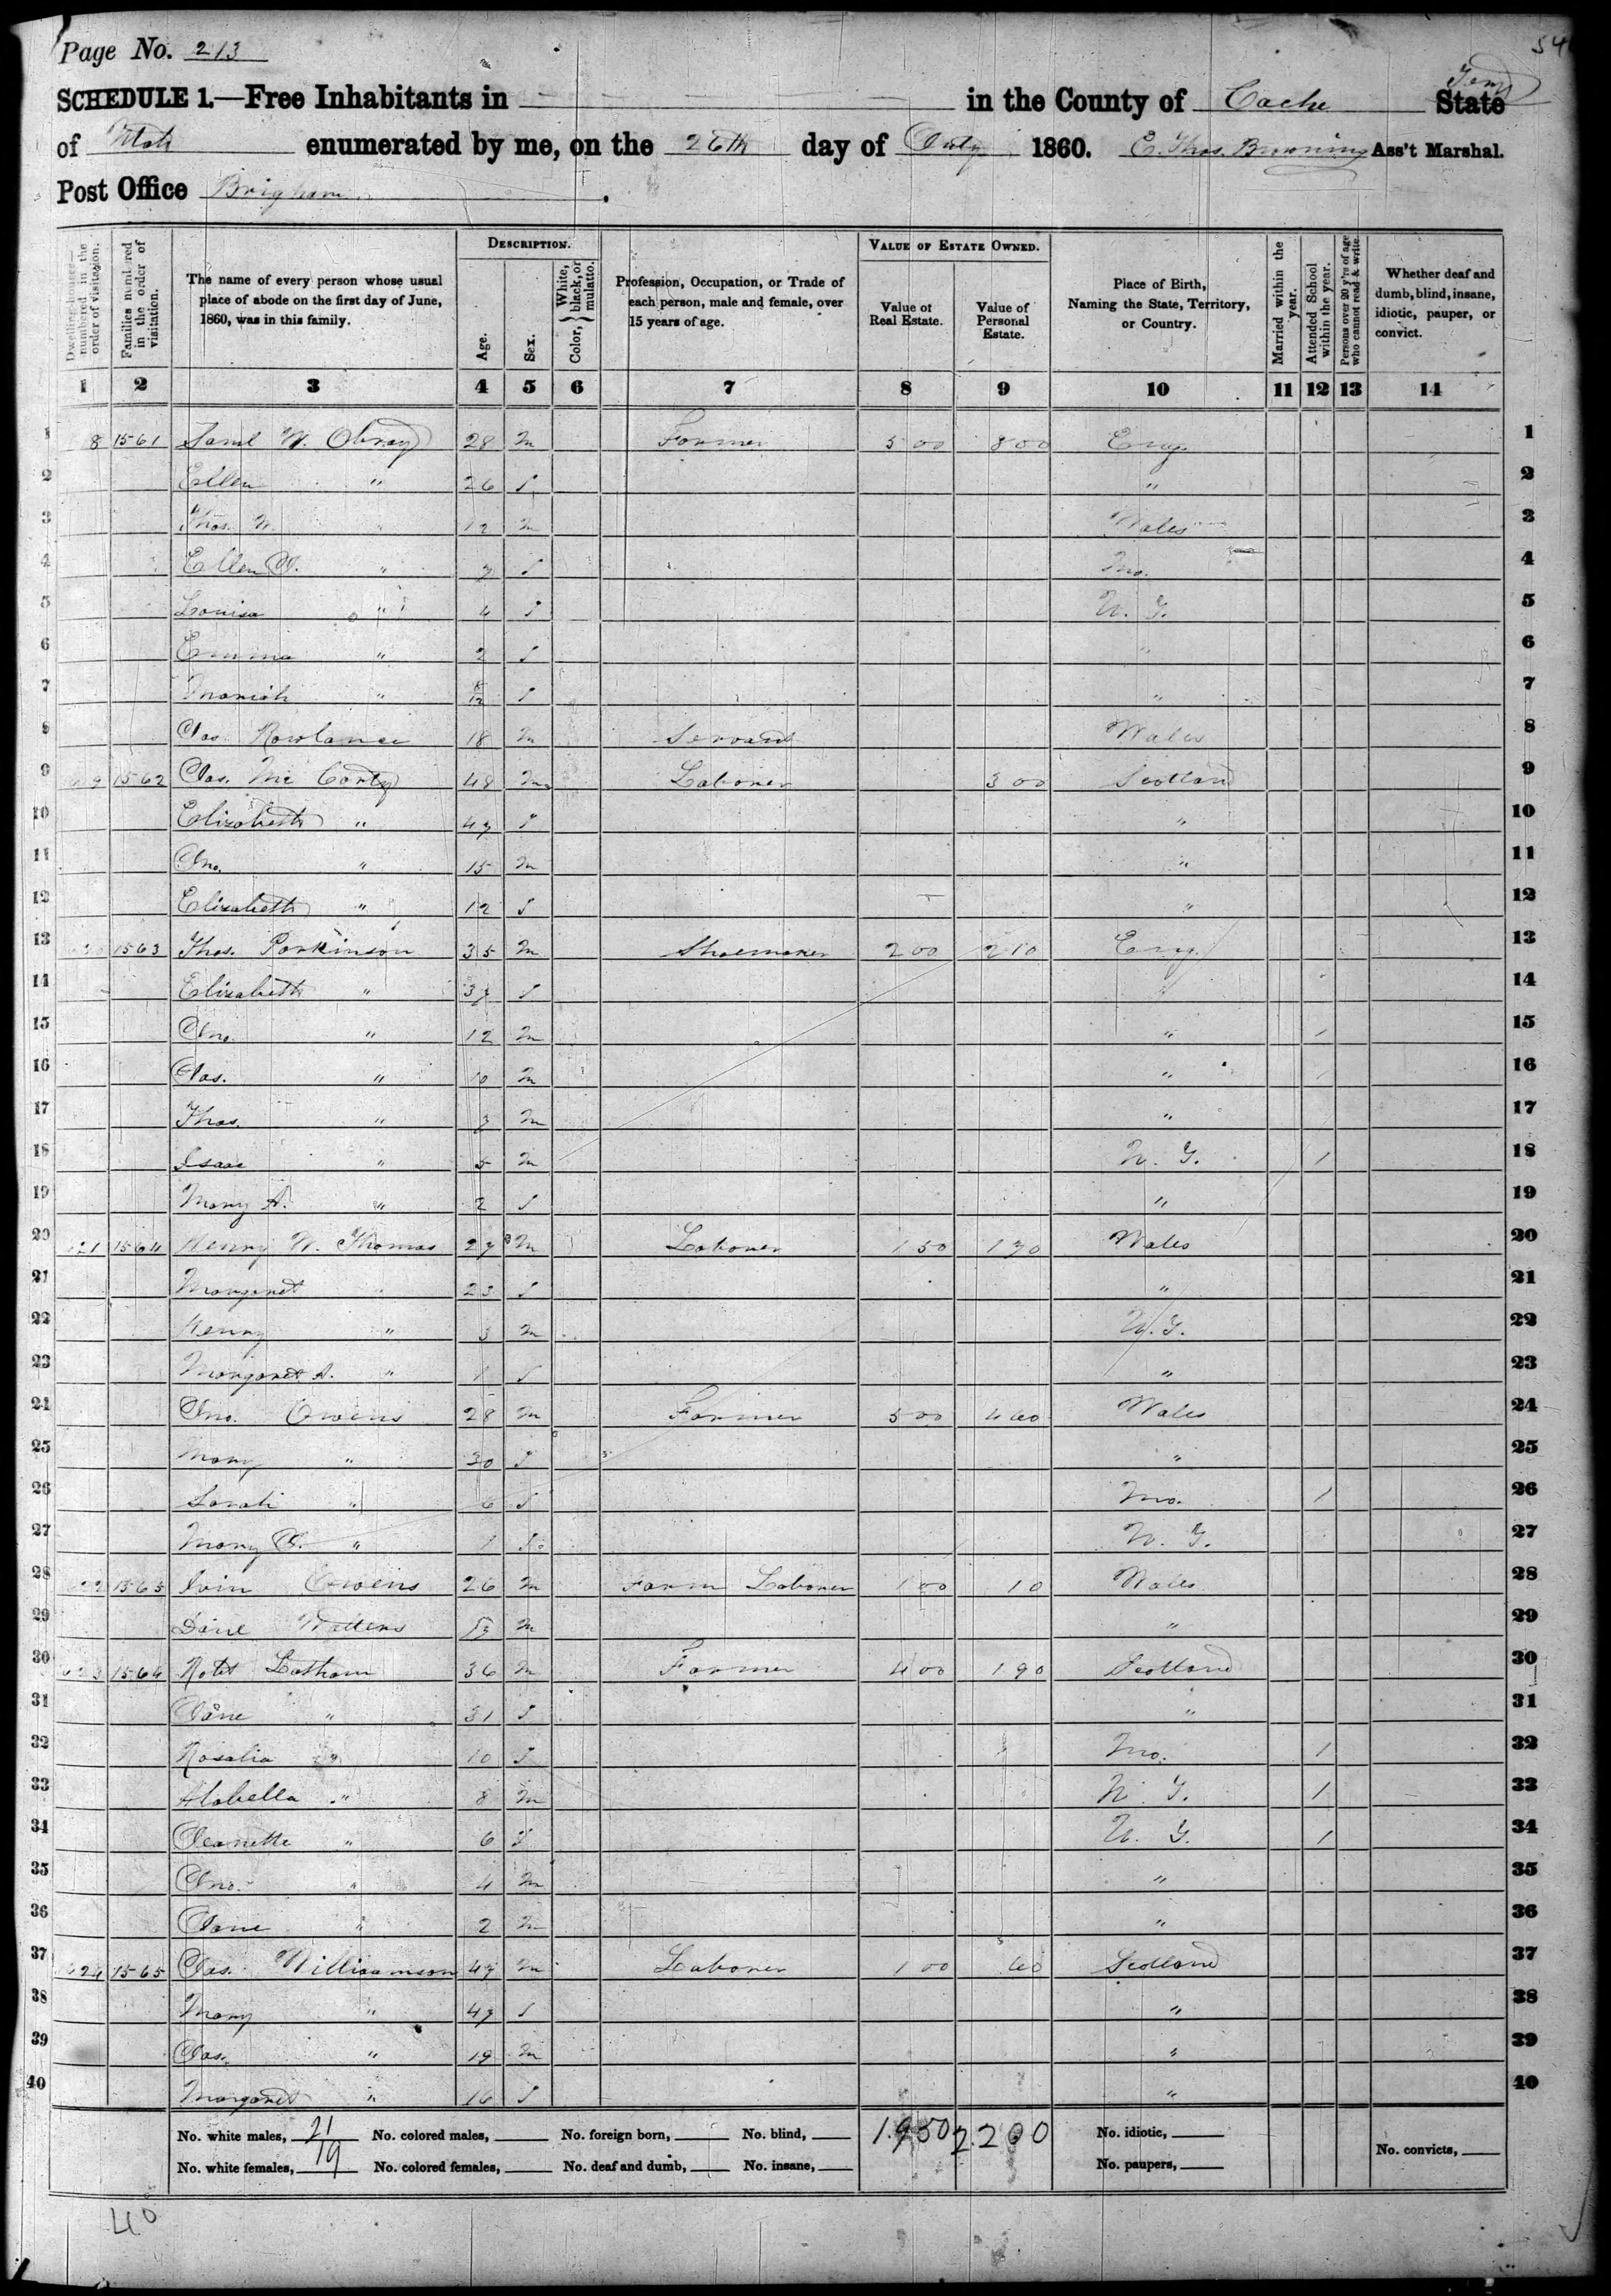 Page No. 213
SCHEDULE 1.—Free Inhabitants in in the County of Cache Terry State
of Utah enumerated by me, on the 26th day of July 1860. E. Thos. Browning Ass't Marshal.
Post Office Brigham.
Dwelling-houses—numbered in the order of visitation.
Families numbered in the order of visitation.
The name of every person whose usual place of abode on the first day of June, 1860, was in this family.
DESCRIPTION.
Age.
Sex.
Color, { White, black, or mulatto.
Profession, Occupation, or Trade of each person, male and female, over 15 years of age.
VALUE OF ESTATE OWNED.
Value of Real Estate.
Value of Personal Estate.
Place of Birth, Naming the State, Territory, or Country.
Married within the year.
Attended School within the year.
Persons over 20 y'rs of age who cannot read & write.
Whether deaf and dumb, blind, insane, idiotic, pauper, or convict.
1 2 3 4 5 6 7 8 9 10 11 12 13 14
1 8 1561 Saml W. Obray 28 m Farmer 500 800 Eng. 1
2 Ellen " 26 f " 2
3 Thos. W. " 12 m Wales 3
4 Ellen J. " 7 f Mo. 4
5 Louisa " 4 f U. T. 5
6 Emma " 2 f " 6
7 Mariah " /12 f " 7
8 Jas. Rowlance 18 m Servant Wales 8
9 9 1562 Jas. Mc Carty 48 m Laborer 300 Scotland 9
10 Elizabeth " 47 f " 10
11 Jno. " 15 m " 11
12 Elizabeth " 12 f " 12
13 1563 Thos. Parkinson 35 m Shoemaker 200 210 Eng. 13
14 Elizabeth " 37 f " 14
15 Jno. " 12 m " / 15
16 Jas. " 10 m " / 16
17 Thos. " 7 m " 17
18 Isaac " 5 m U. T. / 18
19 Mary A. " 2 f " 19
20 21 1564 Henry W. Thomas 27 m Laborer 150 190 Wales 20
21 Margaret " 23 f " 21
22 Henry " 3 m U. T. 22
23 Margaret A. " 1 f " 23
24 Jno. Owens 28 m Farmer 500 440 Wales 24
25 Mary " 30 f " 25
26 Sarah " 6 f Mo. / 26
27 Mary J. " 1 f U. T. 27
28 22 1565 Owens 26 m Farm Laborer 100 10 Wales 28
29 m " 29
30 23 1564 Robt Latham 36 m Farmer 400 190 Scotland 30
31 Jane " 31 f " 31
32 Rosalia " 10 f Mo. 1 32
33 Alabella " 8 m U. T. 1 33
34 Jeanette " 6 f U. T. 1 34
35 Jno. " 4 m " 35
36 Jane " 2 m " 36
37 24 1565 Jas. Williamson 47 m Laborer 100 60 Scotland 37
38 Mary " 47 f " 38
39 Jas. " 19 m " 39
40 Margaret " 16 f " 40
No. white males, 21 No. colored males, No. foreign born, No. blind, 1.950 2.200 No. idiotic,
No. white females, 19 No. colored females, No. deaf and dumb, No. insane, No. paupers, No. convicts,
40